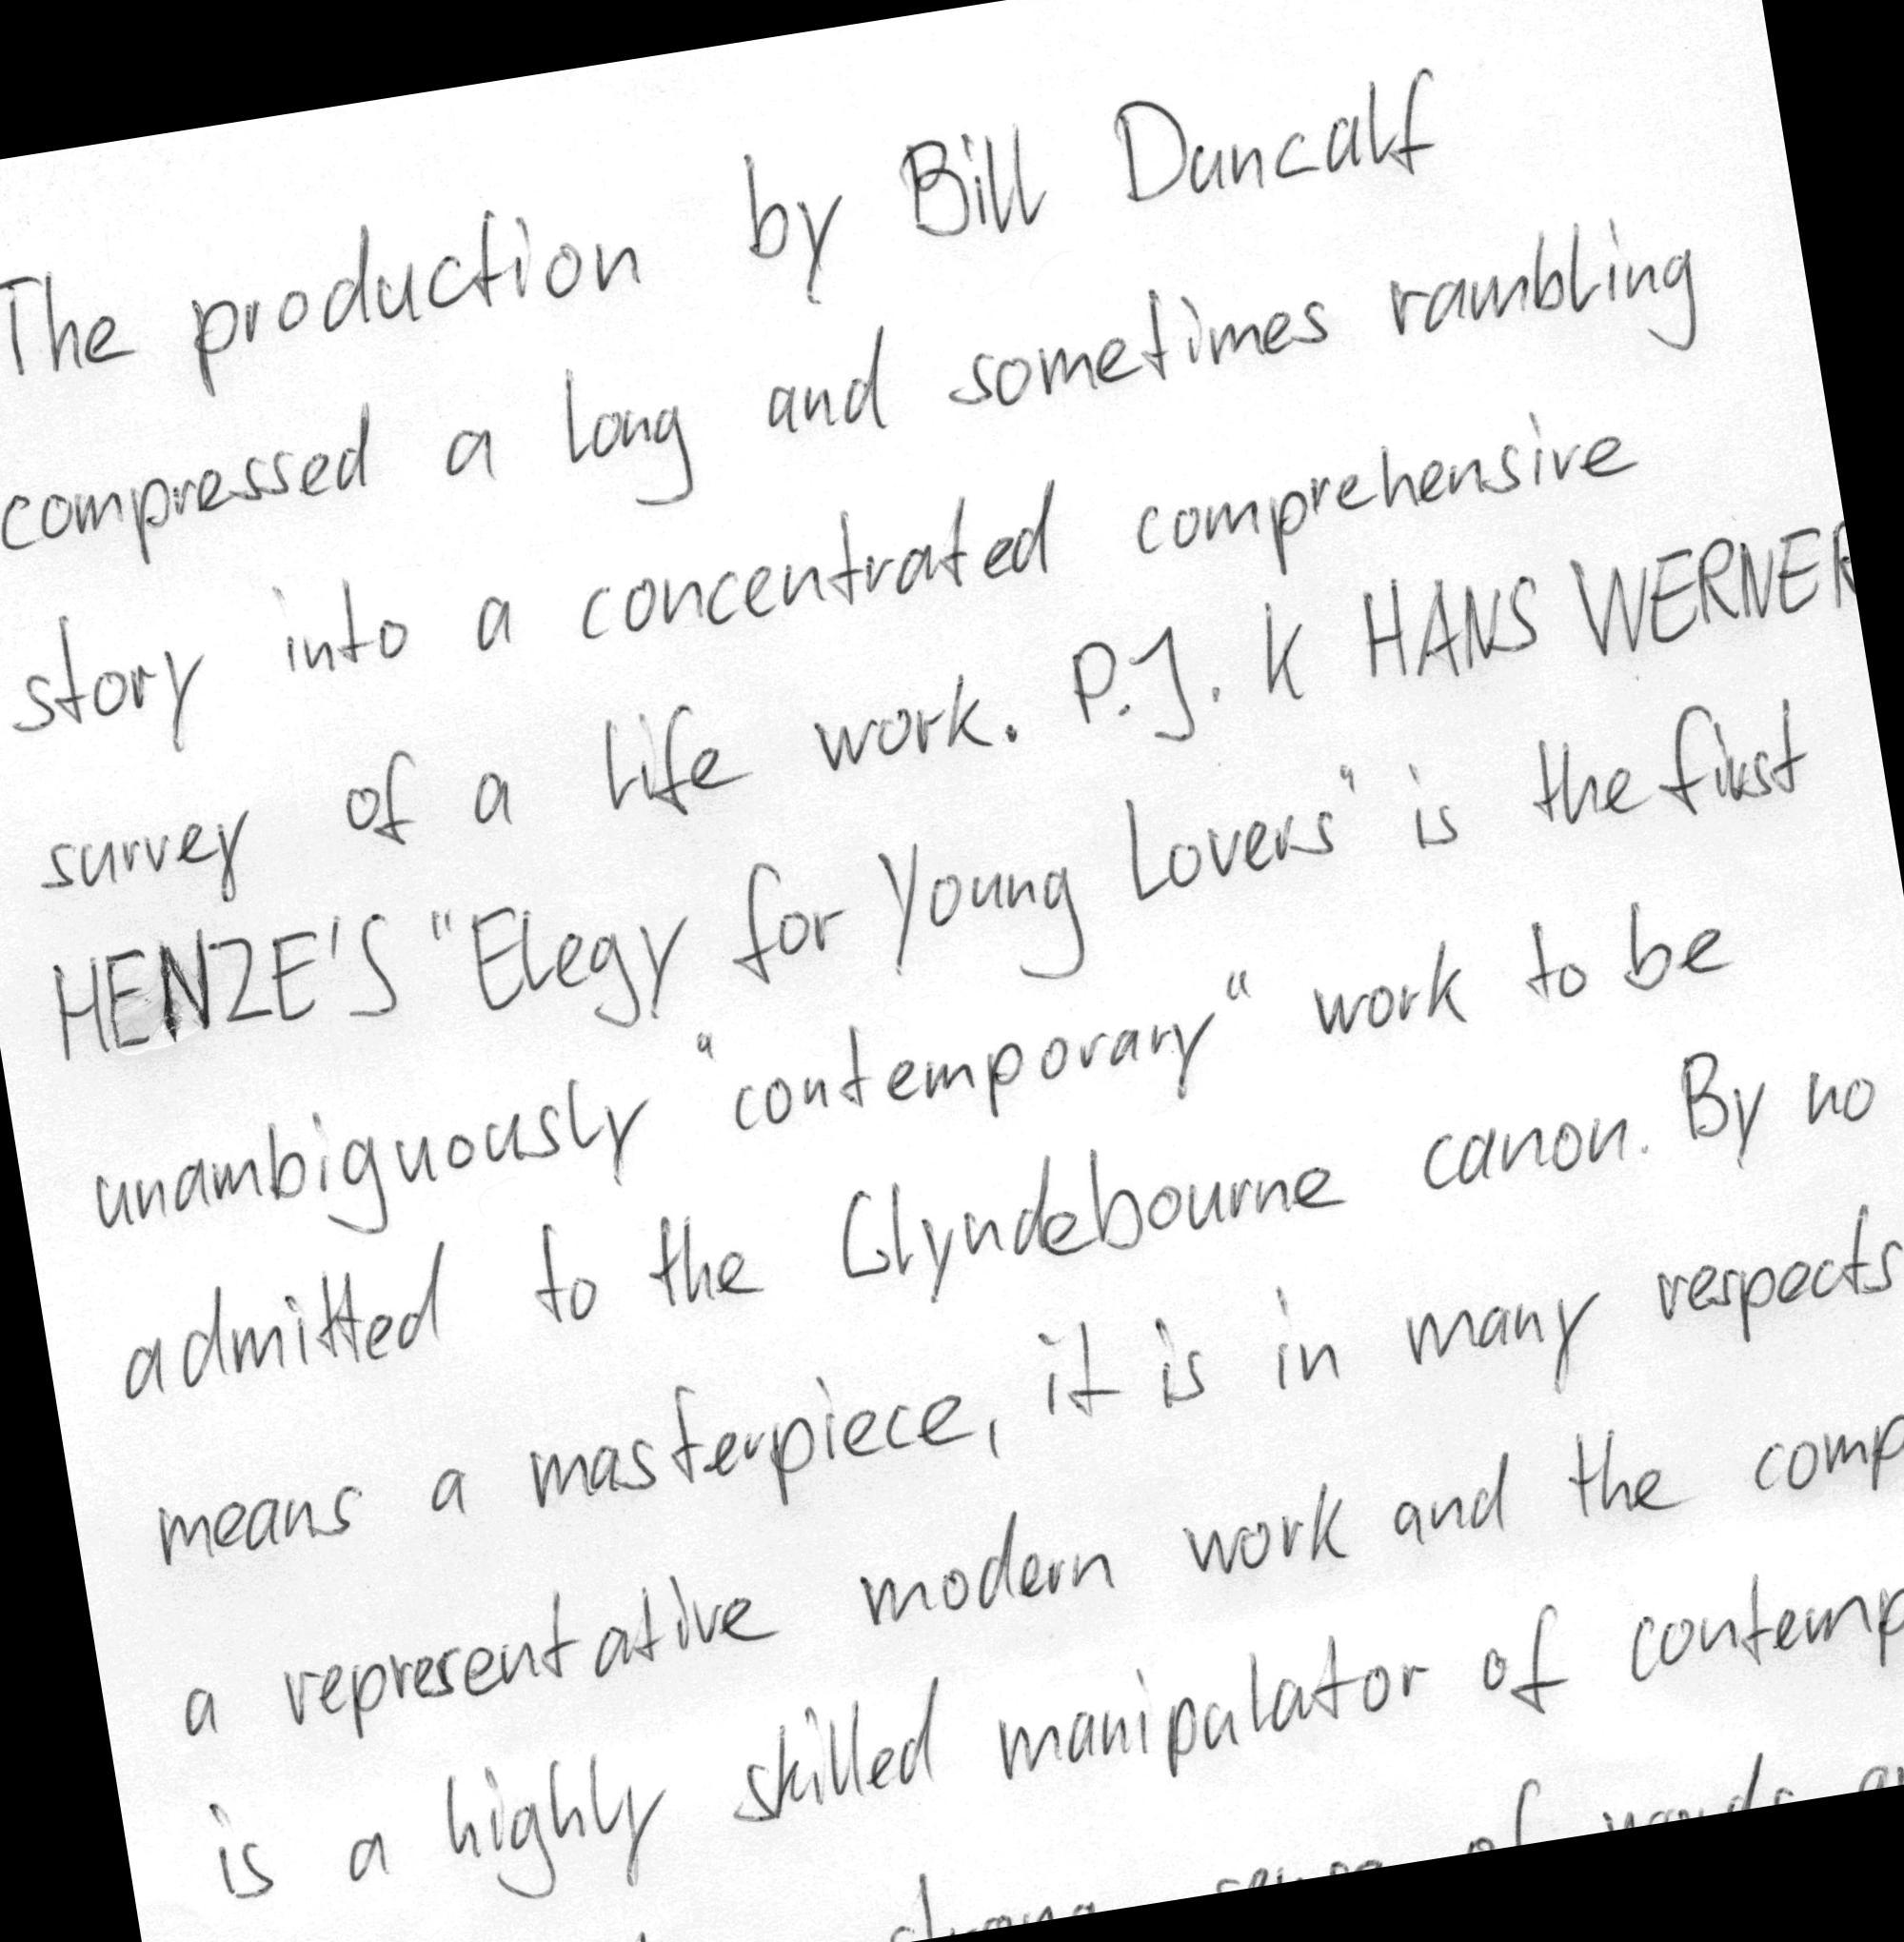 The production by Bill Duncalf
compressed a long and sometimes rambling
story into a concentrated comprehensive
survey of a life work. P.J. K HANS WERNER
HENZE'S "Elegy for Young Lovers" is the first
unambiguously "contemporary" work to be
admitted to the Glyndebourne canon. By no
means a masterpiece, it is in many respects
a representative modern work and the comp
is a highly skilled manipulator of contemp
strong sense of